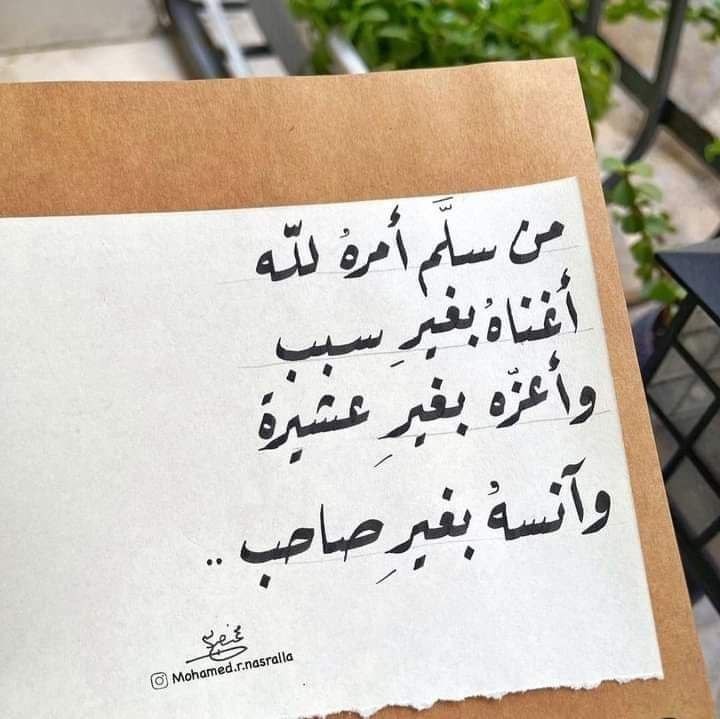 من سلَّم أمرهُ للّه
أغناهُ بغيرِ سبب
وأعزّه بغيرِ عشيرة
وآنسهُ بغيرِ صاحب ..
Mohamed.r.nasralla